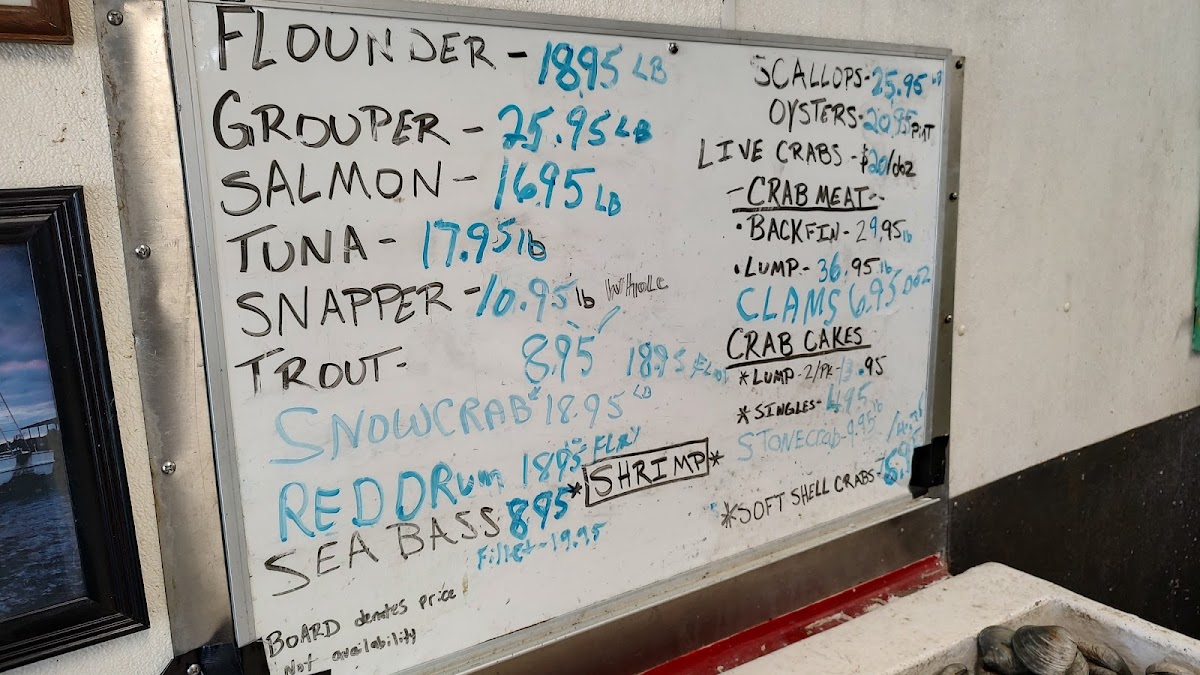 FLOUNDER - 18.95 LB
GROUPER - 25.95 LB
SALMON - 16.95 LB
TUNA - 17.95 lb
SNAPPER - 10.95 lb WHOLE
TROUT - 8.95 18.95
SNOWCRAB 18.95 LB
RED DRUM 18.95
SEA BASS 8.95
Fillet - 19.95
*SHRIMP*
BOARD denotes price!
Not availability
SCALLOPS - 25.95 LB
OYSTERS - 20.95 PINT
LIVE CRABS - $20/doz
- CRAB MEAT -
• BACKFIN - 29.95 lb
• LUMP - 36.95 lb
CLAMS 6.95 DOZ
CRAB CAKES
* LUMP - 2/PK - .95
* SINGLES - 4.95
STONECRAB - 9.95 lb
*SOFT SHELL CRABS -